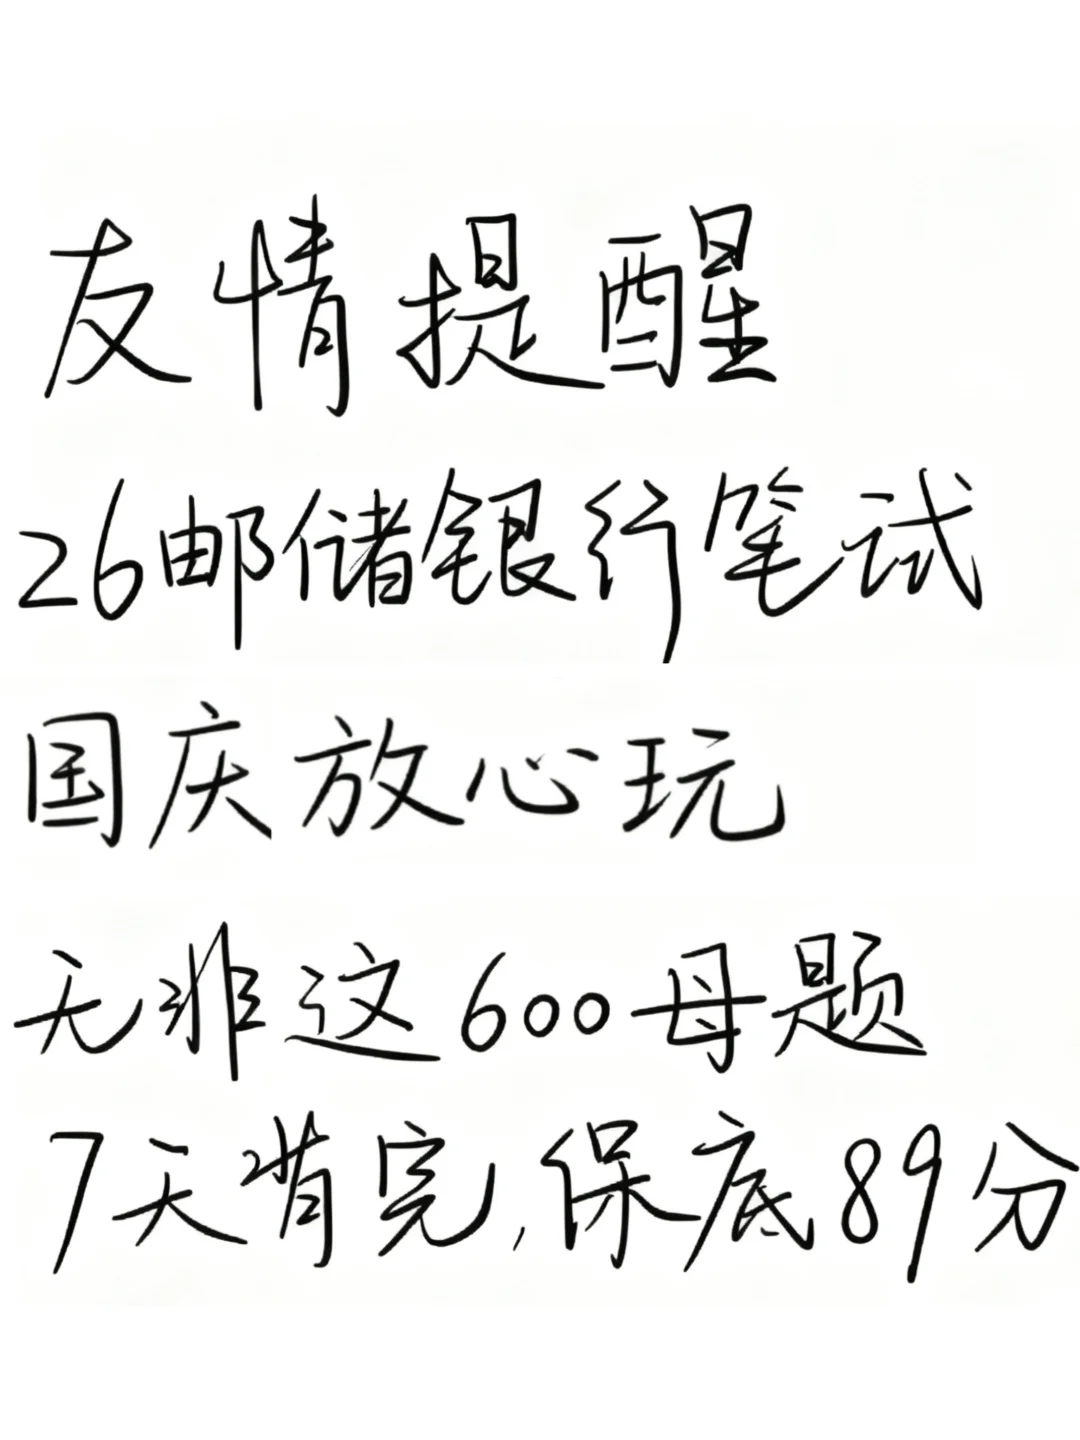 友情提醒
26邮储银行笔试
国庆放心玩
无非这600母题
7天背完,保底89分